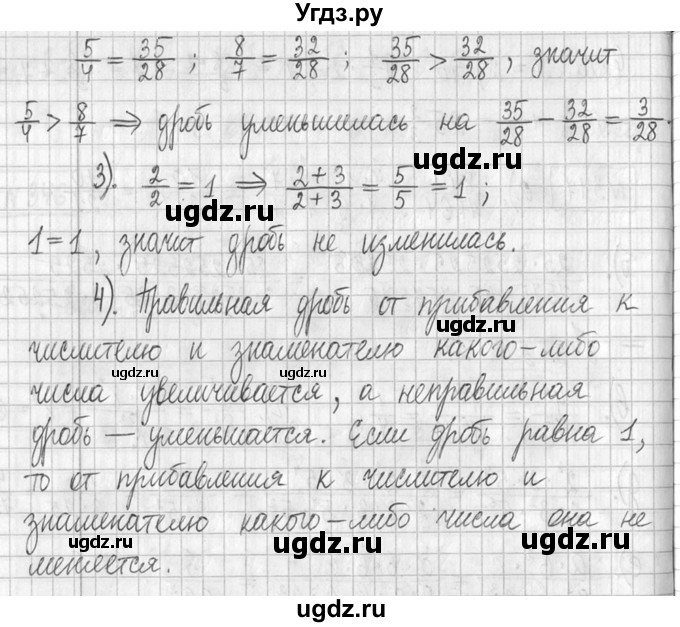 Угдз.ру
5/4 = 35/28 ; 8/7 = 32/28 ; 35/28 > 32/28 , значит
5/4 > 8/7 ⇒ дробь уменьшилась на 35/28 − 32/28 = 3/28.
ugdz.ru
3). 2/2 = 1 ⇒ 2+3/2+3 = 5/5 = 1 ;
ugdz.ru ugdz.ru
1 = 1 , значит дробь не изменилась.
4). Правильная дробь от прибавления к
ugdz.ru
числителю и знаменателю какого-либо
ugdz.ru ugdz.ru
числа увеличивается, а неправильная
дробь — уменьшается. Если дробь равна 1,
то от прибавления к числителю и
знаменателю какого-либо числа она не
ugdz.ru ugdz.ru ugdz.ru
меняется.
ugdz.ru